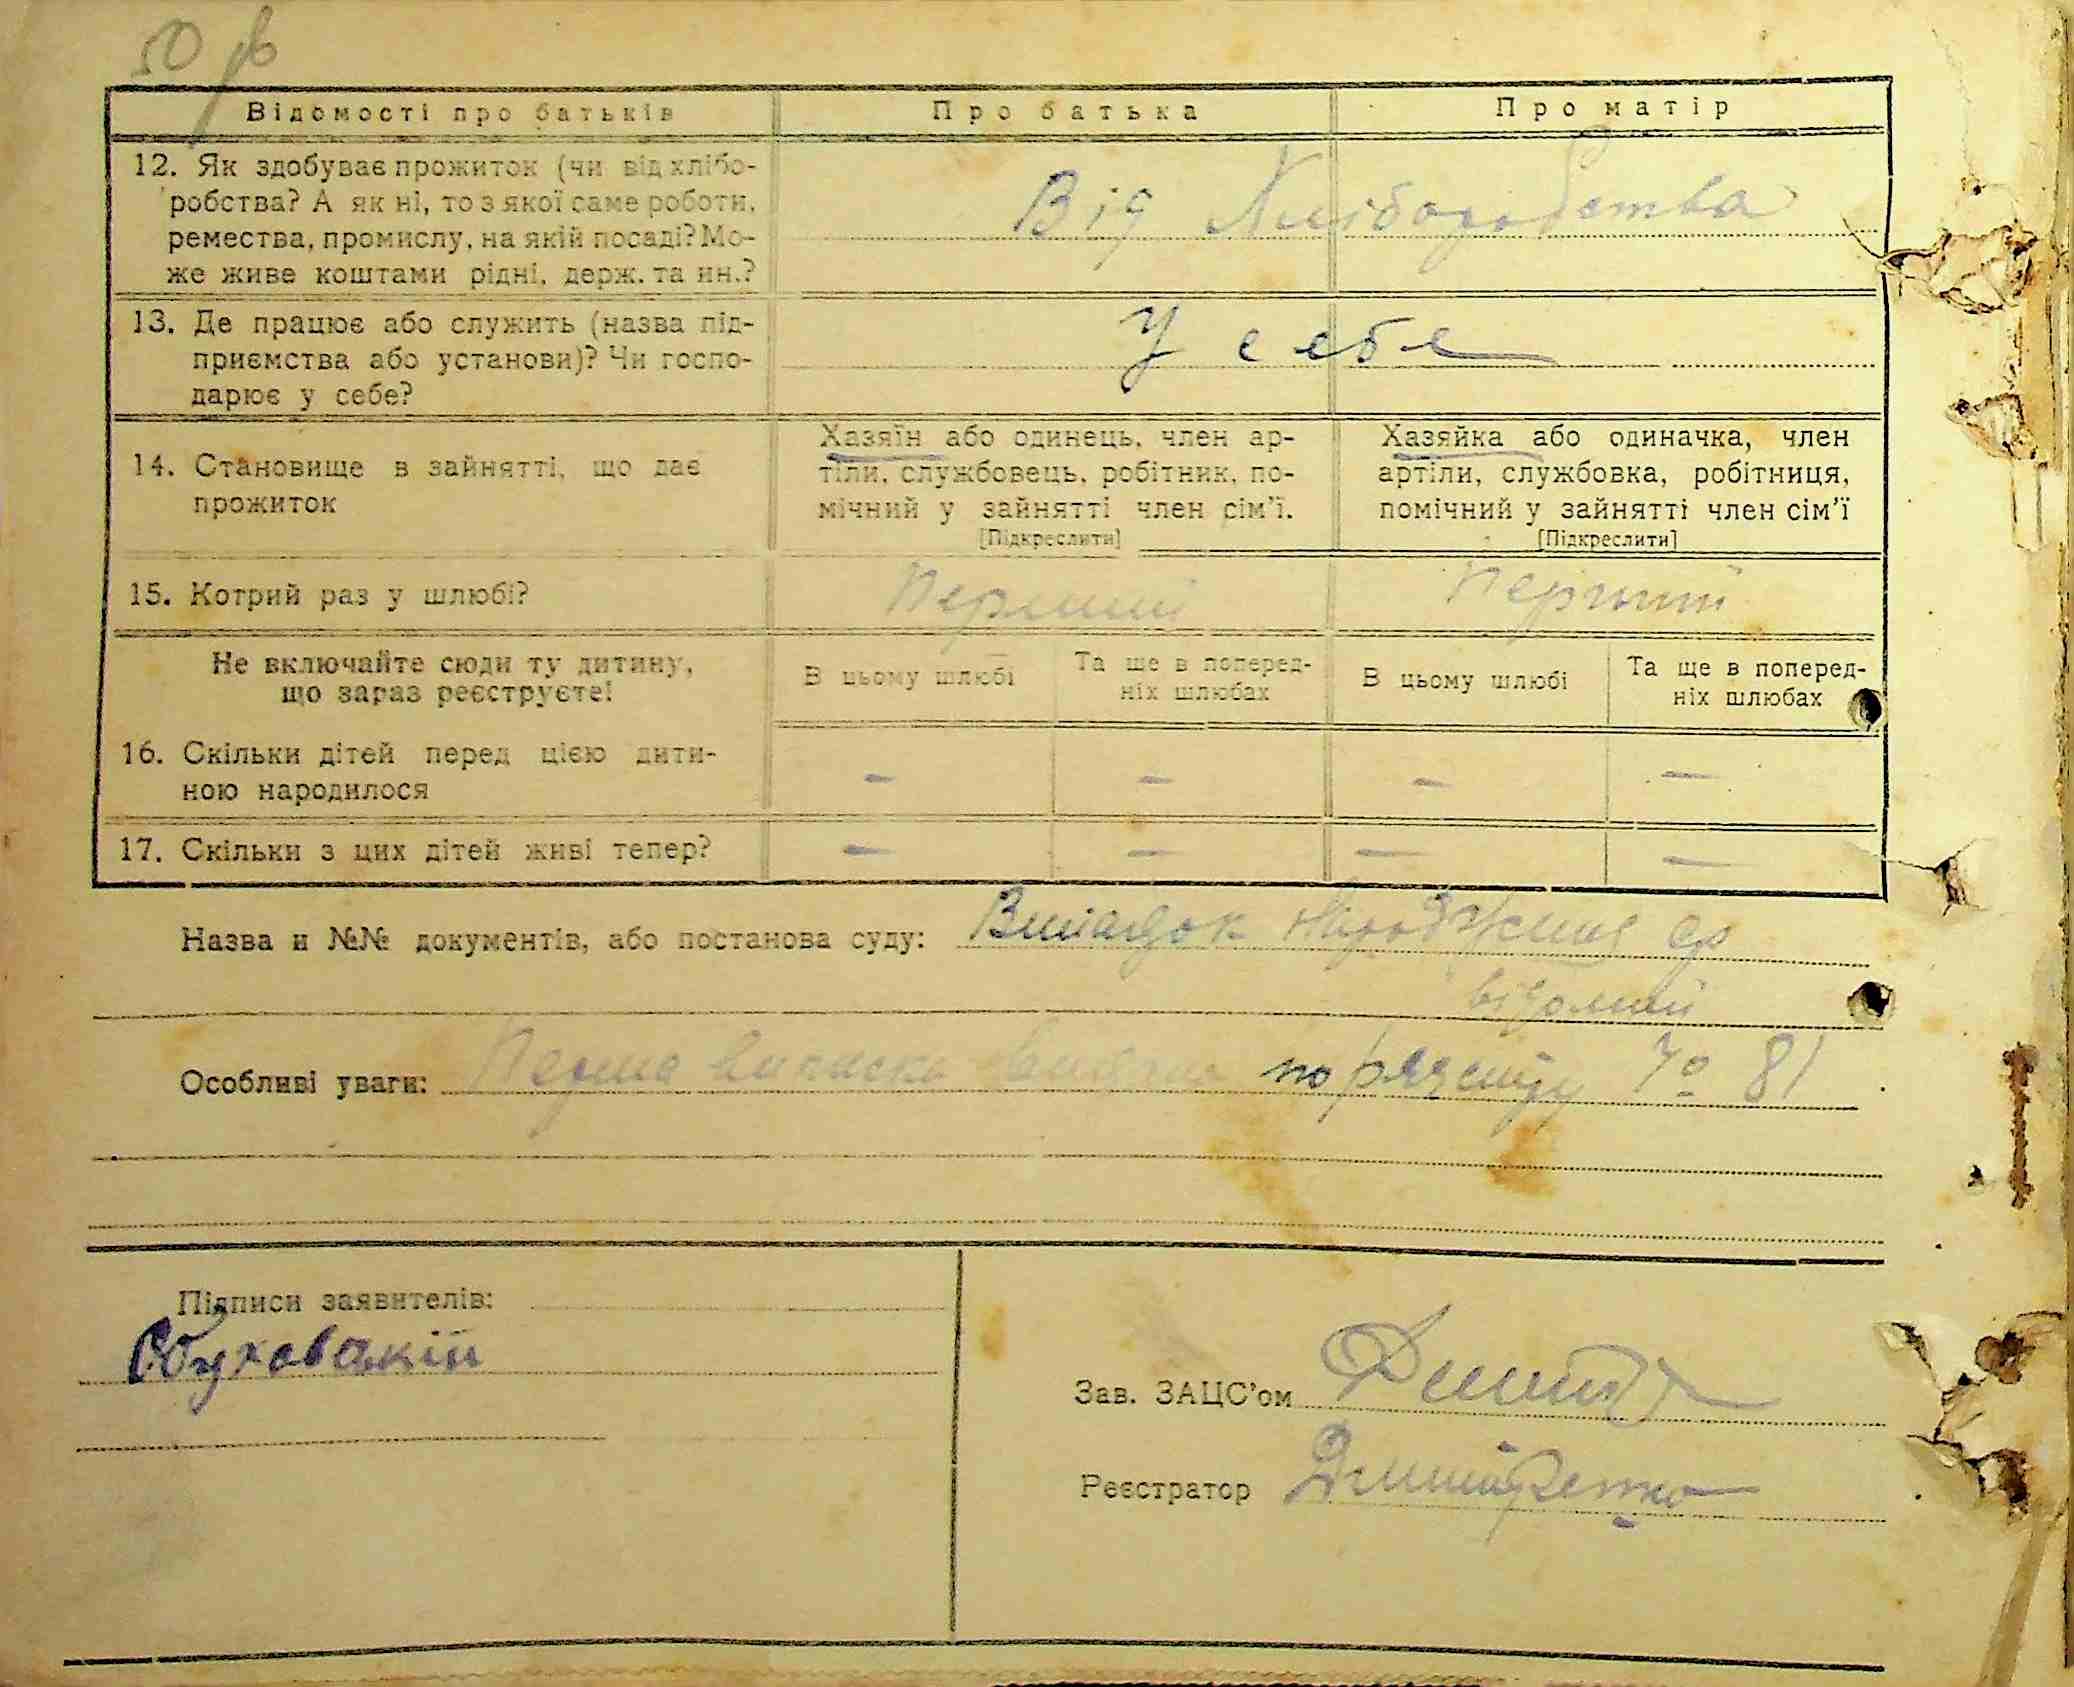 50
Відомості про батьків
Про батька
Про матір
12. Як здобуває прожиток (чи від хлібо-
робства? А як ні, то з якої саме роботи,
ремества, промислу, на якій посаді? Мо-
же живе коштами рідні, держ. та ин.?
Від Хліборобства
13. Де працює або служить (назва під-
приємства або установи)? Чи госпо-
дарює у себе?
У себе
14. Становище в зайнятті, що дає
прожиток
Хазяїн або одинець, член ар-
тіли, службовець, робітник, по-
мічний у зайнятті член сім'ї.
[Підкреслити]
Хазяйка або одиначка, член
артіли, службовка, робітниця,
помічний у зайнятті член сім'ї
[Підкреслити]
15. Котрий раз у шлюбі?
Перший
Перший
Не включайте сюди ту дитину,
що зараз реєструєте!
В цьому шлюбі
Та ще в поперед-
ніх шлюбах
В цьому шлюбі
Та ще в поперед-
ніх шлюбах
16. Скільки дітей перед цією дити-
ною народилося
– – – –
17. Скільки з цих дітей живі тепер?
– – – –
Назва и №№ документів, або постанова суду: Випадок
відомий
Особливі уваги: Перша виписка по 81
Підписи заявителів:
Зав. ЗАЦС'ом
Реєстратор